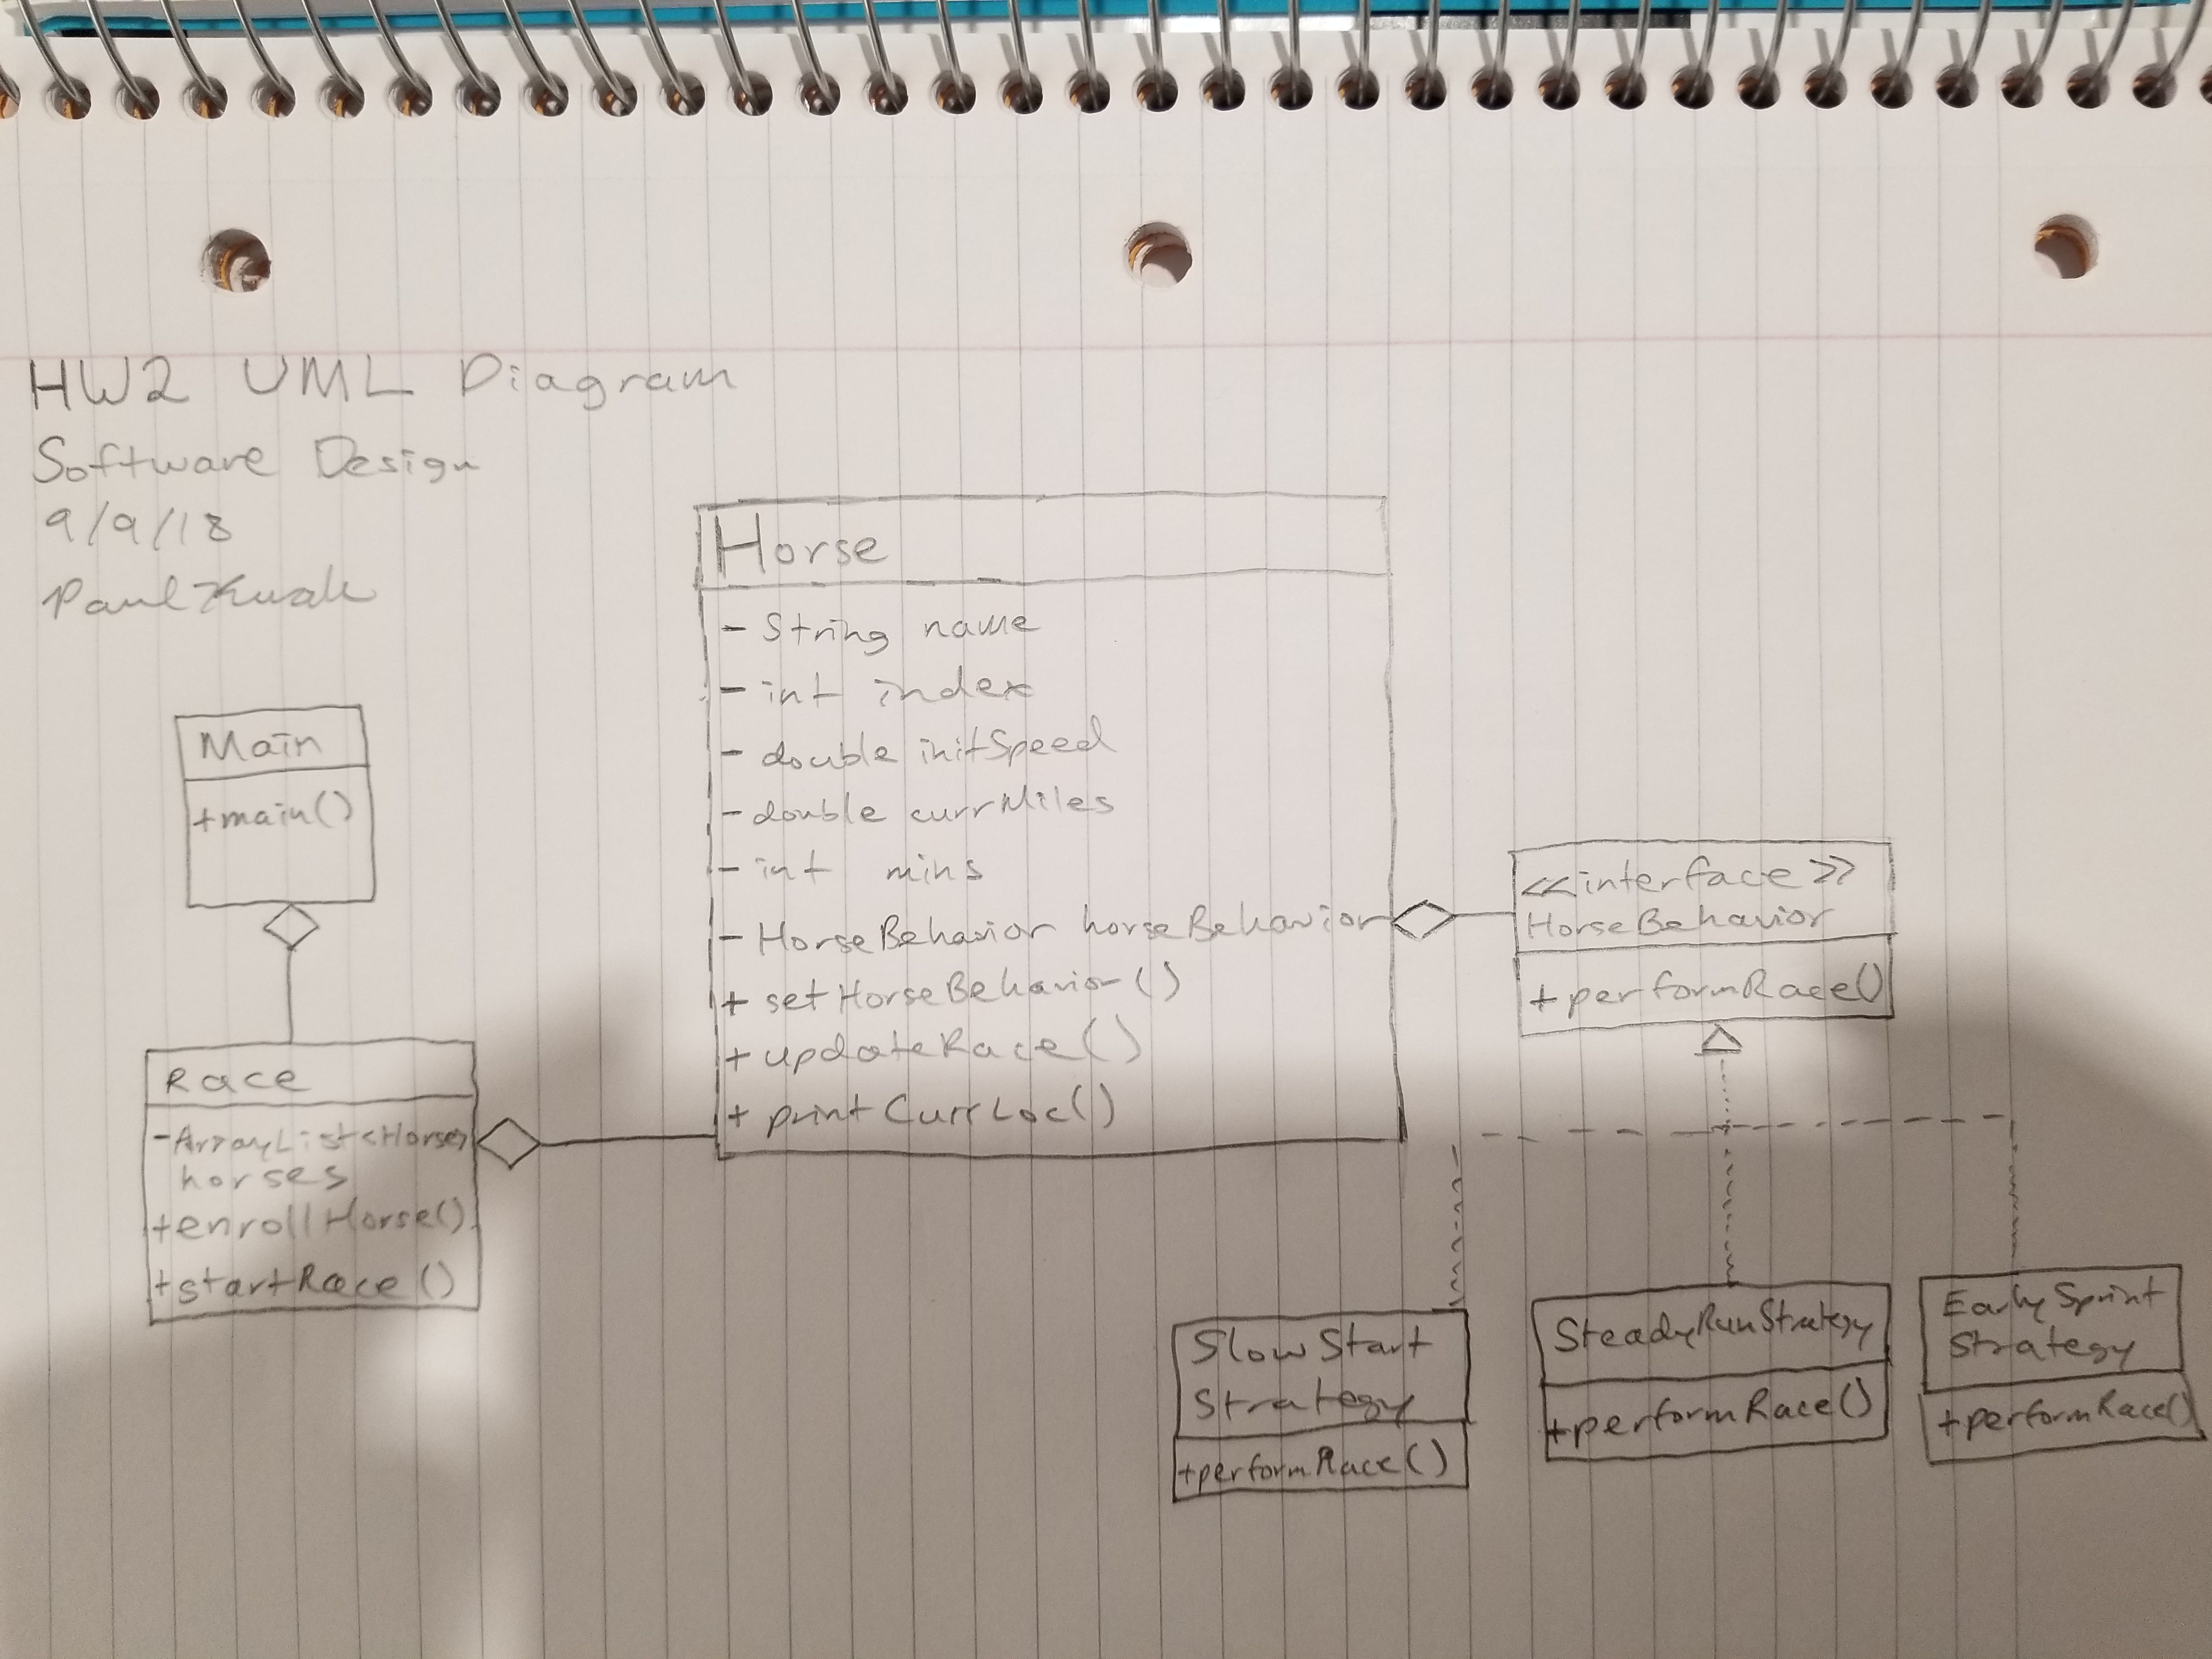 HW2 UML Diagram
Software Design
9/9/18
Paul
Main
+main()
Race
-ArrayList<Horse>
horses
+enrollHorse()
+startRace()
Horse
- String name
- int index
- double initSpeed
- double currMiles
- int mins
- HorseBehavior horseBehavior
+ setHorseBehavior()
+ updateRace()
+ printCurrLoc()
<<interface>>
HorseBehavior
+performRace()
SlowStart
Strategy
+performRace()
SteadyRunStrategy
+performRace()
EarlySprint
Strategy
+performRace()